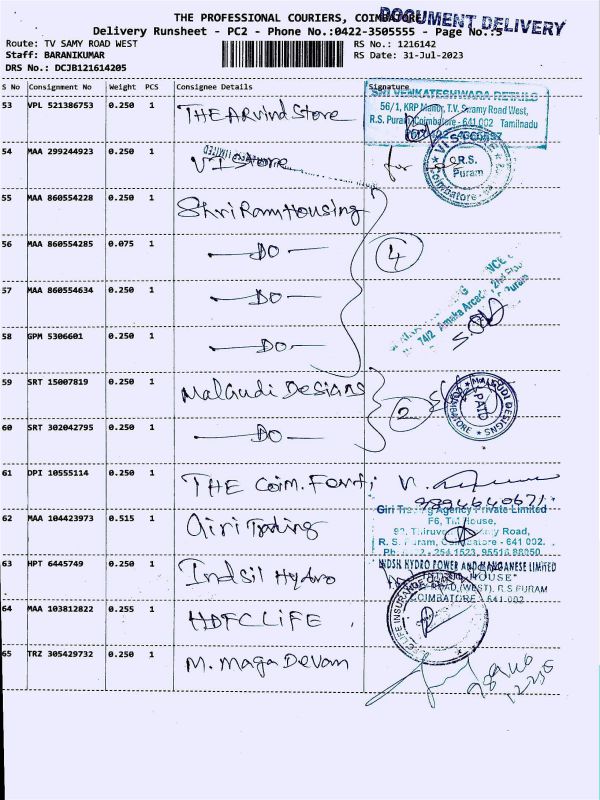 THE PROFESSIONAL COURIERS, COIMBATORE
DOCUMENT DELIVERY
Delivery Runsheet - PC2 - Phone No.:0422-3505555 - Page No.:5
Route: TV SAMY ROAD WEST RS No.: 1216142
Staff: BARANIKUMAR RS Date: 31-Jul-2023
DRS No.: DCJB121614205
S No Consignment No Weight PCS Consignee Details Signature
53 VPL 521386753 0.250 1 THE ARvind Store
SRI VENKATESHWARA RETAILS
56/1, KRP Manor, T.V. Swamy Road West,
R.S. Puram, Coimbatore - 641 002 Tamilnadu
54 MAA 299244923 0.250 1 VI Store
for
VI STORE
R.S.
Puram
Coimbatore
55 MAA 860554228 0.250 1 Shri Ram Housing
56 MAA 860554285 0.075 1 — DO — 4
57 MAA 860554634 0.250 1 — DO —
74/2 Arcade, 2nd Floor
58 GPM 5306601 0.250 1 — DO —
59 SRT 15007819 0.250 1 Malgudi Designs 2
MALGUDI DESIGNS
PAID
COIMBATORE
60 SRT 302042795 0.250 1 — DO —
61 DPI 10555114 0.250 1 THE Coim.
62 MAA 104423973 0.515 1 Giri Trading
Giri Trading Agency Private Limited
F6, House,
Road,
R. S. Puram, Coimbatore - 641 002.
63 HPT 6445749 0.250 1 Indsil Hydro
INDSIL HYDRO POWER AND MANGANESE LIMITED
HOUSE"
ROAD (WEST), R.S PURAM
COIMBATORE - 641 002
64 MAA 103812822 0.255 1 HDFC LIFE
LIFE INSURANCE
65 TRZ 305429732 0.250 1 M. Maga Devan